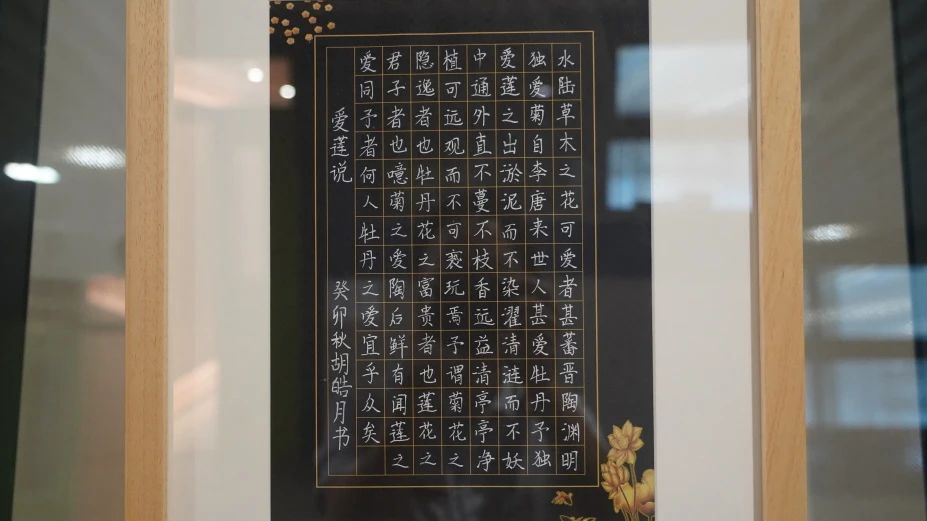 水陆草木之花可爱者甚蕃晋陶渊明
独爱菊自李唐来世人甚爱牡丹予独
爱莲之出淤泥而不染濯清涟而不妖
中通外直不蔓不枝香远益清亭亭净
植可远观而不可亵玩焉予谓菊花之
隐逸者也牡丹花之富贵者也莲花之
君子者也噫菊之爱陶后鲜有闻莲之
爱同予者何人牡丹之爱宜乎众矣
爱莲说 癸卯秋胡皓月书